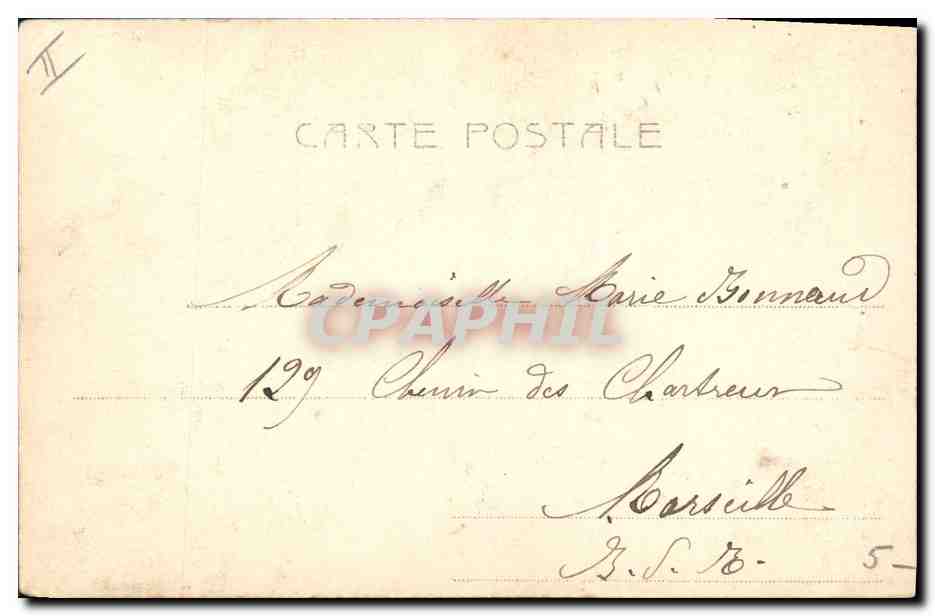 II
CARTE POSTALE
Mademoiselle Marie Bonnaud
CPAPHIL
129 Chemin des Chartreux
Marseille
B. d. R. 5-